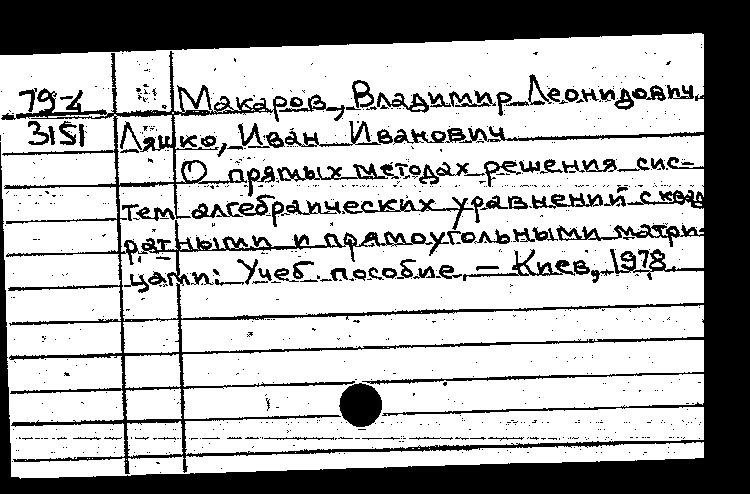 79-4
3151
Макаров, Владимир Леонидович,
Ляшко, Иван Иванович
О прямых методах решения сис-
тем алгебраических уравнений с квад
ратными и прямоугольными матри-
цами: Учеб. пособие. — Киев, 1978.